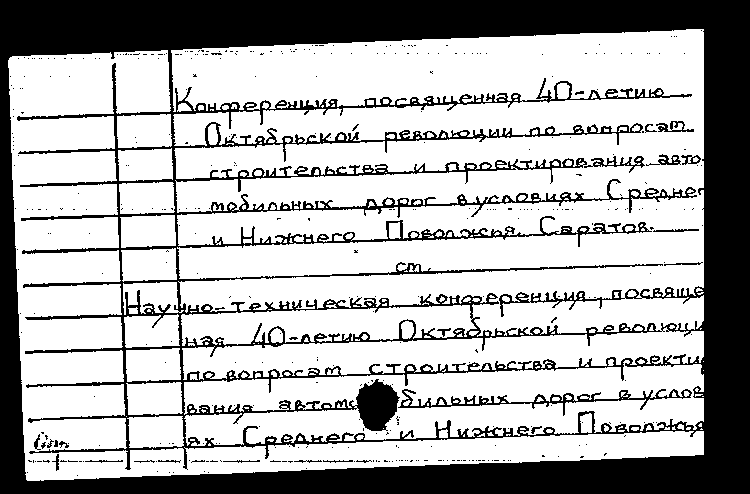 Конференция, посвященная 40-летию
Октябрьской революции по вопросам
строительства и проектирования авто-
мобильных дорог в условиях Среднег
и Нижнего Поволжья. Саратов.
ст.
Научно-техническая конференция, посвяще
ная 40-летию Октябрьской революци
по вопросам строительства и проекти
вания автомобильных дорог в услов
ях Среднего и Нижнего Поволжья